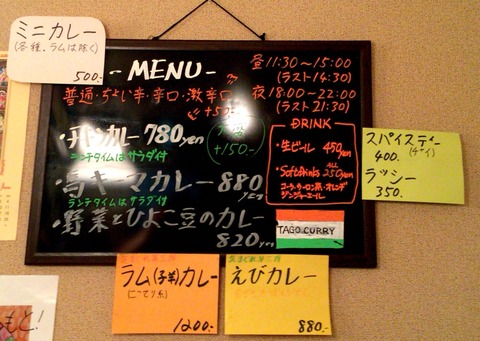 ミニカレー
(各種、ラムは除く)
500-
- MENU -
普通・ちょい辛・辛口・激辛口
+50-
昼 11:30〜15:00
(ラスト14:30)
夜 18:00〜22:00
(ラスト21:30)
・チキンカレー 780yen
ランチタイムはサラダ付
+150-
・鶏キーマカレー 880
yen
ランチタイムはサラダ付
・野菜とひよこ豆のカレー
820yen
DRINK
・生ビール 450yen
・Softdrinks ALL 250yen
コーラ・ウーロン茶・オレンジ
ジンジャーエール
TAGO CURRY
スパイスティー
(チャイ)
400.
ラッシー
350.
ラム(子羊)カレー
(こってり系)
1200-
えびカレー
880-
もと!